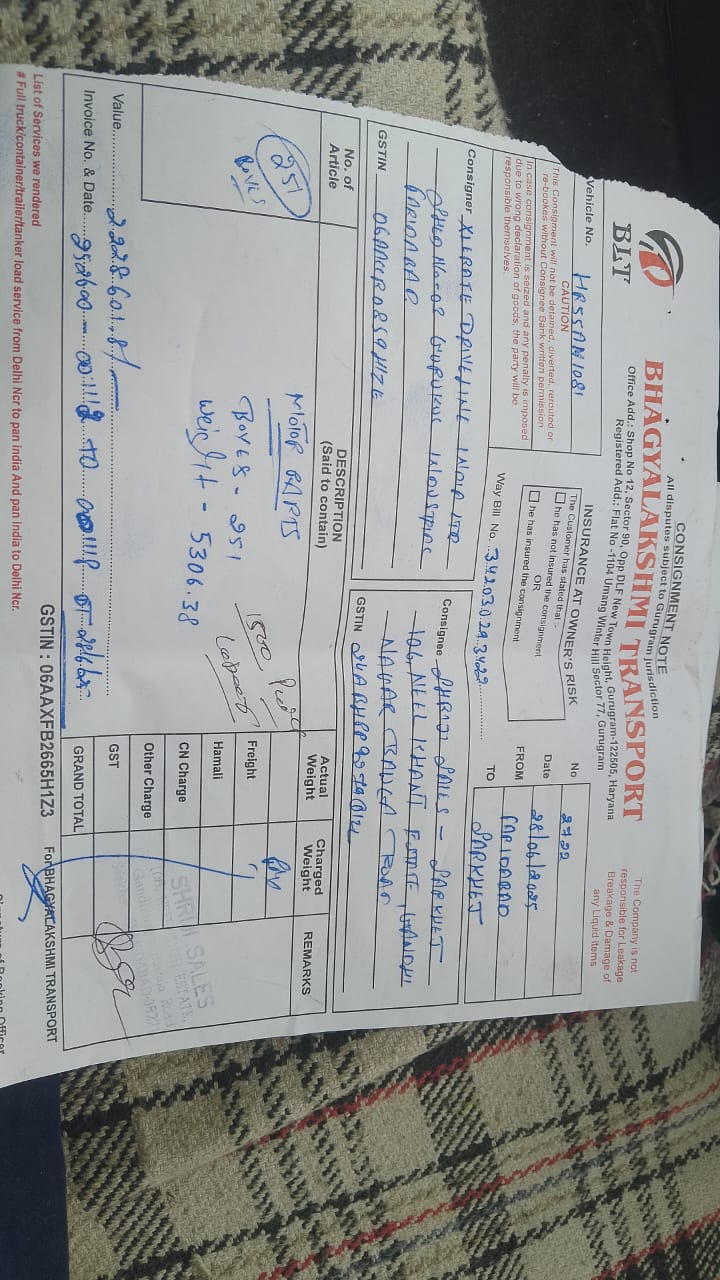 CONSIGNMENT NOTE
All disputes subject to Gurugram jurisdiction
BLT
BHAGYALAKSHMI TRANSPORT
Office Add.: Shop No 12, Sector 90, Opp DLF New Town Height, Gurugram-122505, Haryana
Registered Add.: Flat No -1104 Umang Winter Hill Sector 77, Gurugram
The Company is not
responsible for Leakage
Breakage & Damage of
any Liquid items
Vehicle No. HR55AM1081
CAUTION
This Consigment will not be detained, diverted, rerouted or
re-bookes without Consignee Bank written permission
In case consignment is seized and any penalty is imposed
due to wrong declaration of goods, the party will be
responsible themselves.
INSURANCE AT OWNER'S RISK
The Customer has stated that :-
he has not insured the consignment
OR
he has insured the consignment
Way Bill No. 342030293422
No 2722
Date 28/06/2025
FROM FARIDABAD
TO SARKHEJ
Consigner XLRATE DRIVELINE INDIA LTD
GURUKUL INDUSTRIAL
FARIDABAD
GSTIN
Consignee SHRIJI SALES - SARKHEJ
106 NEEL KHANT ESTATE, GANDHI
NAGAR
GSTIN
No. of
Article
DESCRIPTION
(Said to contain)
Actual
Weight
Charged
Weight
REMARKS
251
BOXES
MOTOR PARTS
BOXES - 251
Weight - 5306.38
1500
Freight
Hamali
CN Charge
Other Charge
GST
GRAND TOTAL
SHRIJI SALES
Value 2228601.81/-
Invoice No. & Date
GSTIN : 06AAXFB2665H1Z3
For BHAGYALAKSHMI TRANSPORT
List of Services we rendered
# Full truck/container/trailer/tanker load service from Delhi Ncr to pan india And pan india to Delhi Ncr.
Signature of Booking Officer